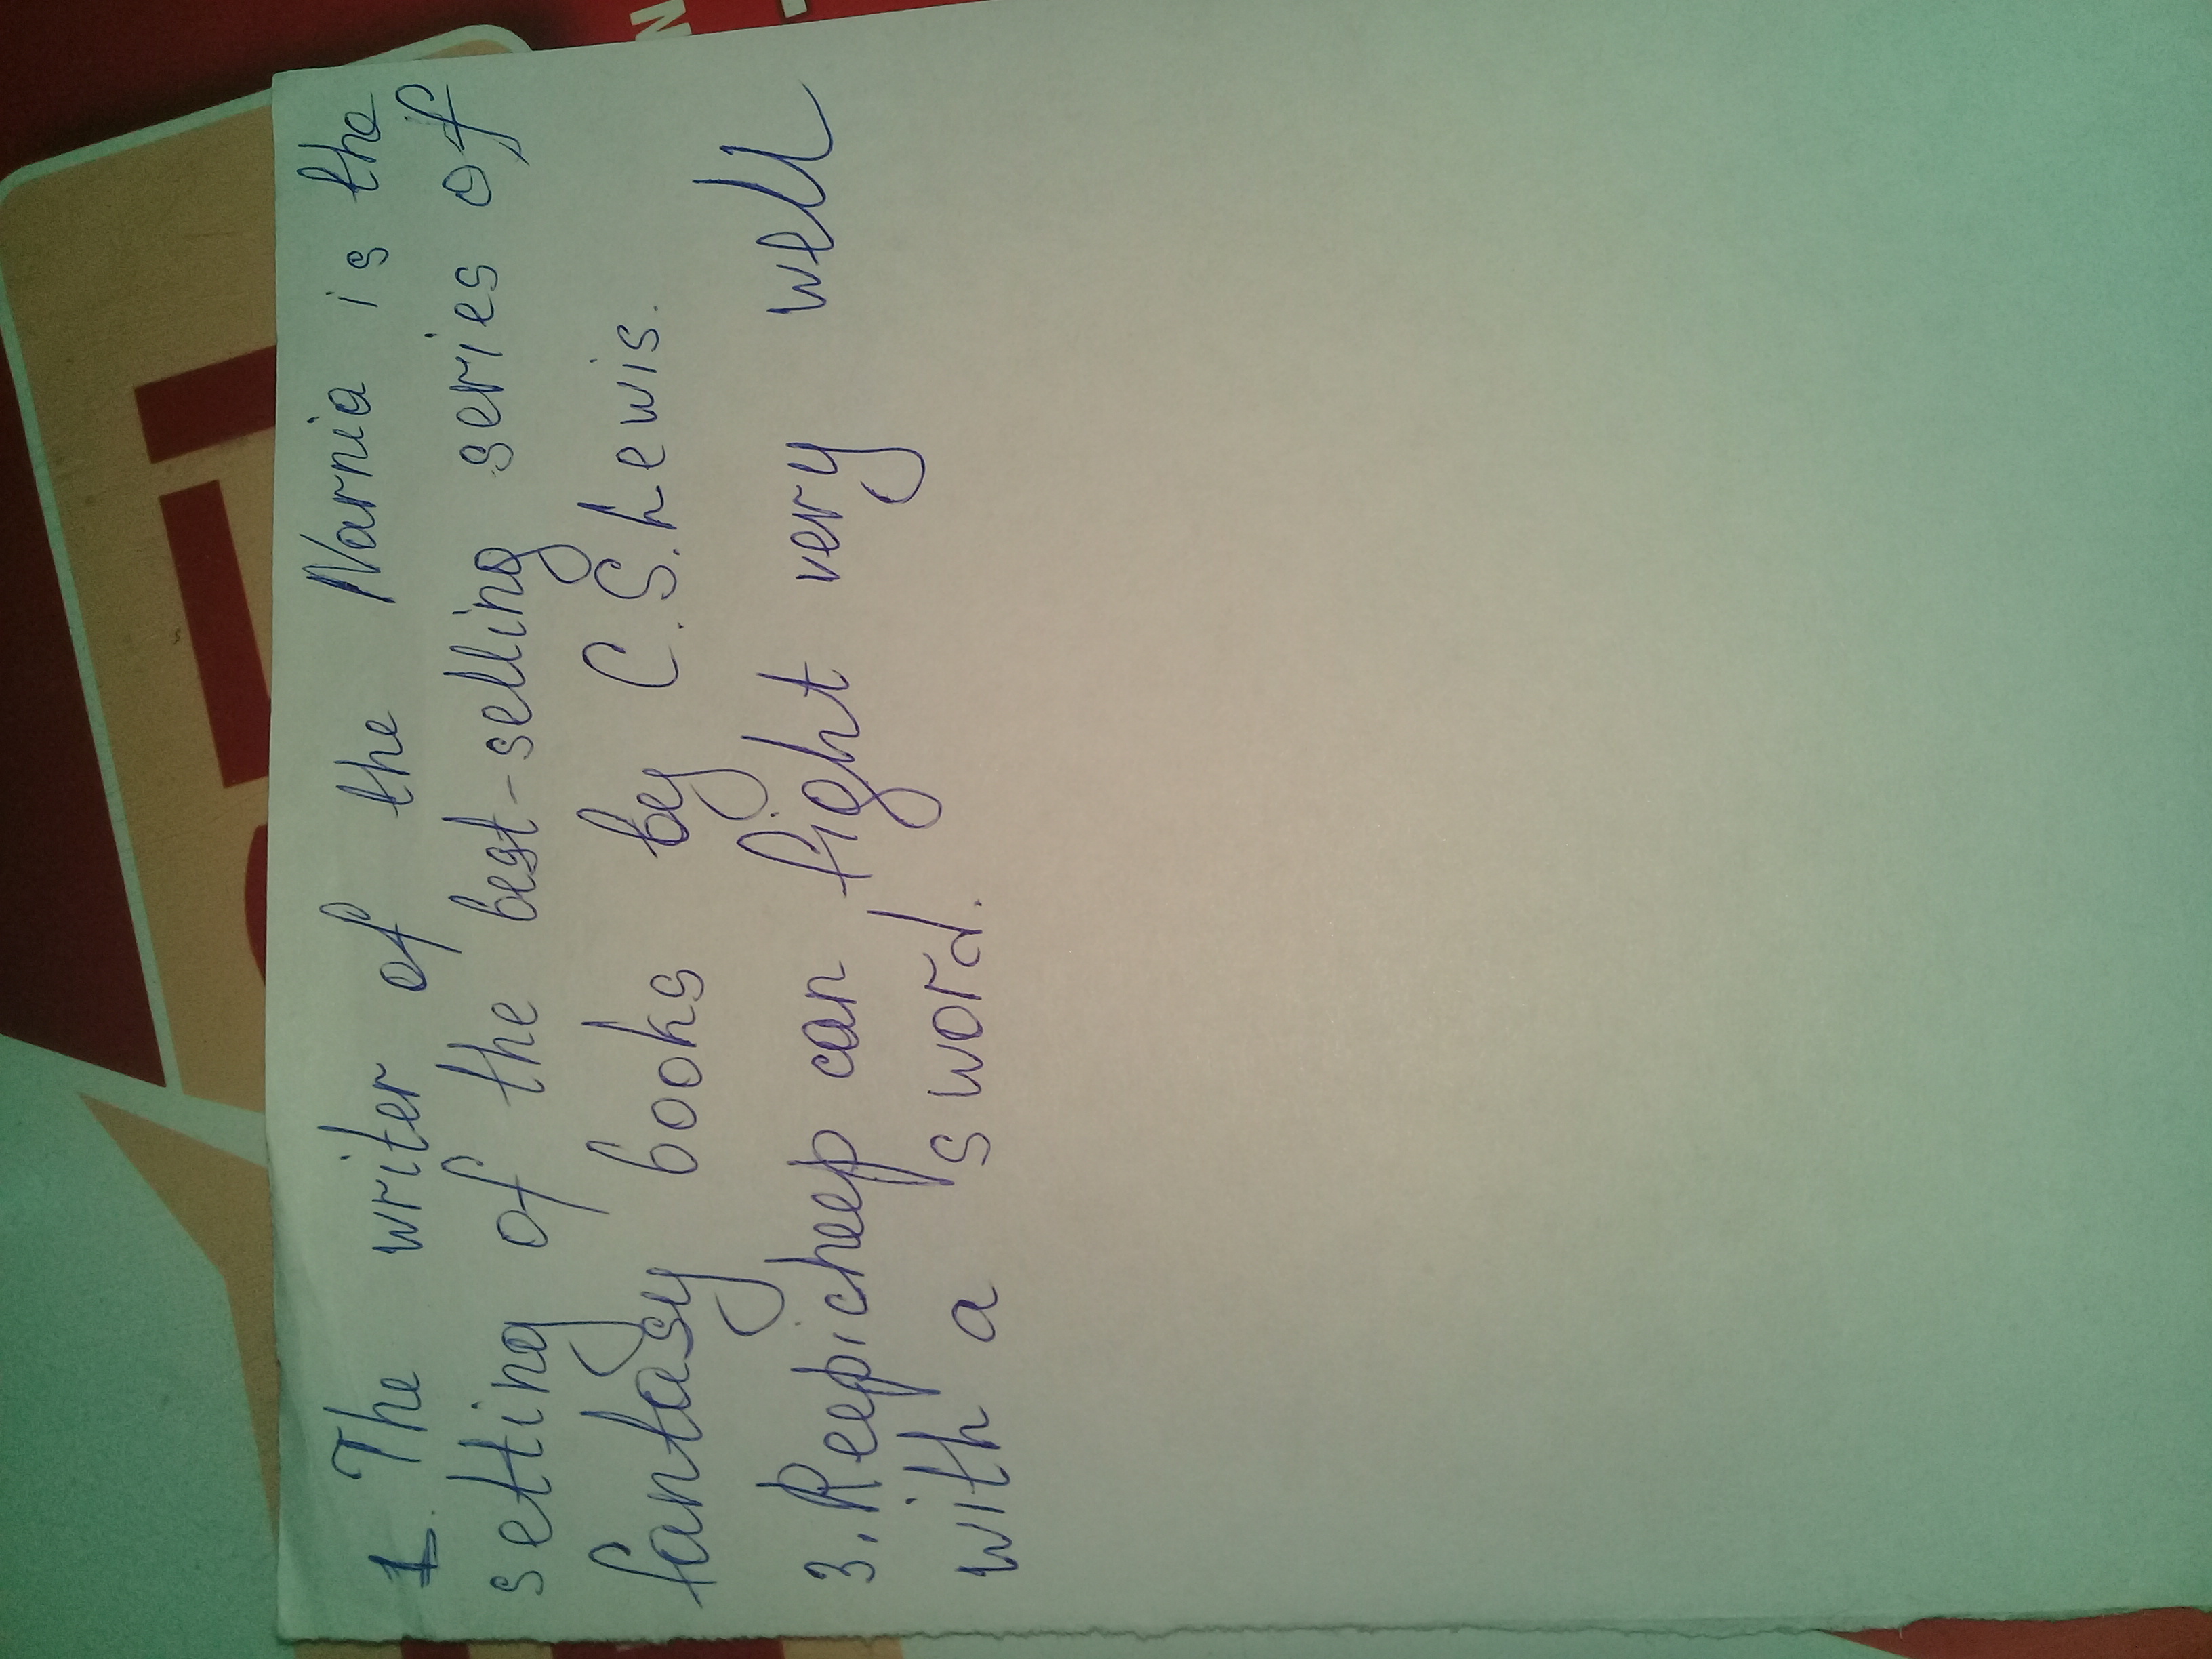 1. The writer of the Narnia is the
setting of the best-selling series of
fantasy books by C.S.Lewis.
3. Reepicheep can fight very well
with a sword.